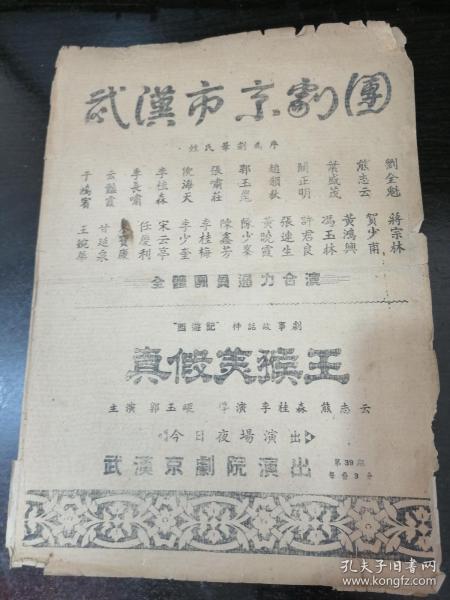 武漢市京劇團
·姓氏筆劃為序
于鴻賓 云艷霞 李長嘯 李桂森 倪海天 張嘯莊 郭玉崑 趙韻秋 關正明 葉盛茂 熊志云 劉全魁
王婉華 甘延泉 任慶利 宋云亭 李少奎 李桂梅 陳鑫芳 陳少峯 黃曉霞 張連生 許君良 馮玉林 黃鴻興 賀少甫 蔣宗林
全體團員通力合演
"西遊記"神話故事劇
真假美猴王
主演 郭玉崑 導演 李桂森 熊志云
今日夜場演出
武漢京劇院演出
第39期
每份3分
孔夫子旧书网
www.kongfz.com